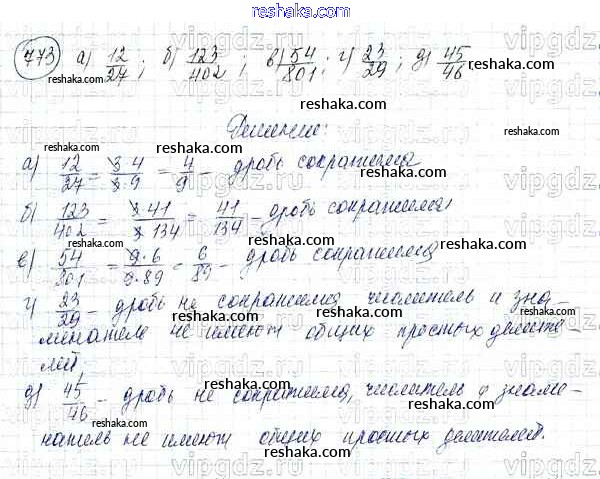 773 а) 12/27 ; б) 123/402 ; в) 54/801 ; г) 23/29 ; д) 45/46
Решение:
а) 12/27 = 3·4/3·9 = 4/9 – дробь сократима
б) 123/402 = 3·41/3·134 = 41/134 – дробь сократима
в) 54/801 = 9·6/9·89 = 6/89 – дробь сократима
г) 23/29 – дробь не сократима, числитель и зна-
менатель не имеют общих простых делите-
лей.
д) 45/46 – дробь не сократима, числитель и знаме-
натель не имеют общих простых делителей.